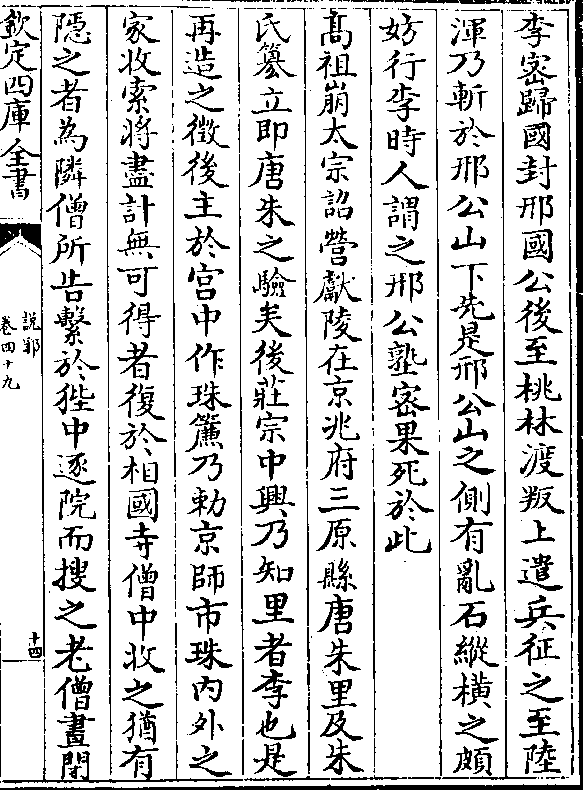 李宻歸國封邢國公後至桃林渡叛上遣兵征之至陸
渾乃斬於邢公山下先是邢公山之側有亂石縱横之頗
妨行李時人謂之邢公塾宻果死於此
髙祖崩太宗詔營獻陵在京兆府三原縣唐朱里及朱
氏簒立即唐朱之驗矣後莊宗中興乃知里者李也是
再造之徴後主於宫中作珠簾乃勅京師市珠内外之
家收索將盡計無可得者復於相國寺僧中收之猶有
隠之者為隣僧所告繫於狴中逐院而搜之老僧晝閉
欽定四庫全書
説郛
卷四十九
十四